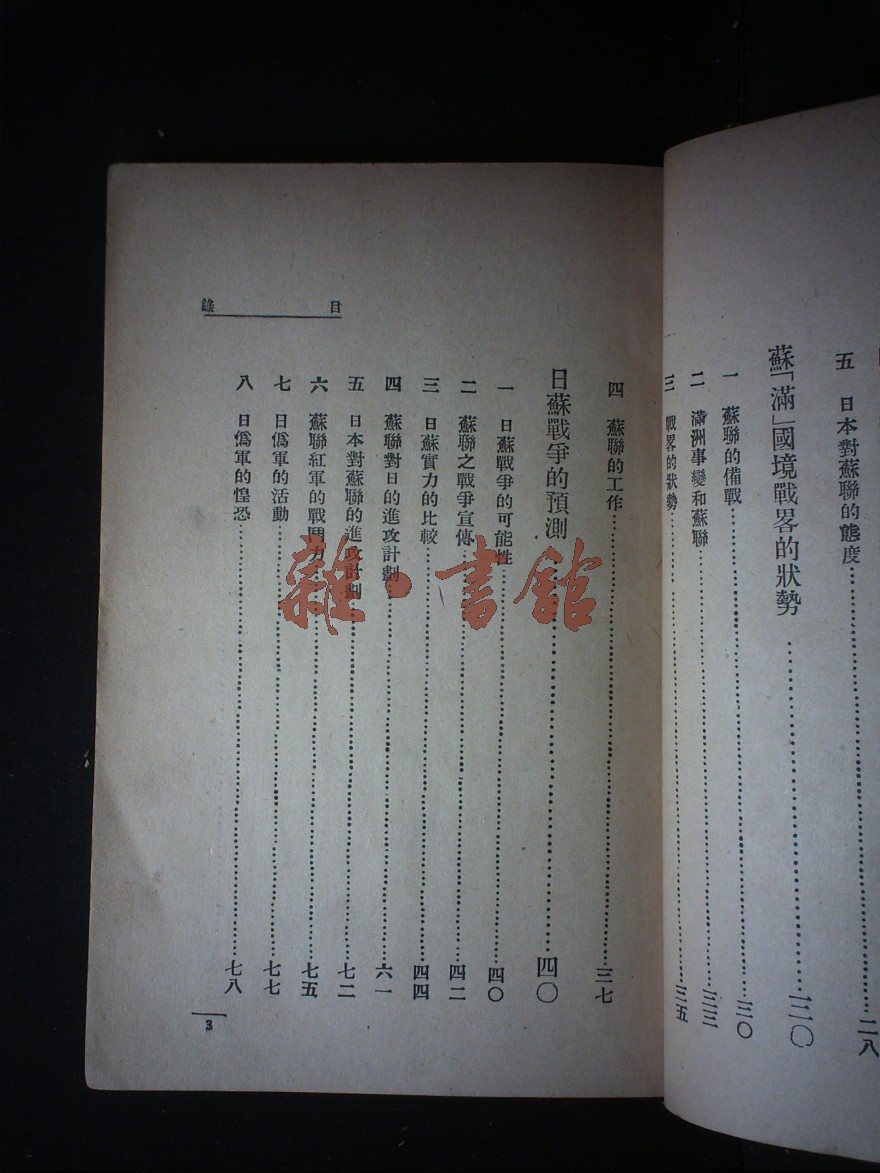 五　日本對蘇聯的態度……二八
蘇「滿」國境戰畧的狀勢……三〇
一　蘇聯的備戰……三〇
二　滿洲事變和蘇聯……三三
三　戰畧的狀勢……三五
目錄
四　蘇聯的工作……三七
日蘇戰爭的預測……四〇
一　日蘇戰爭的可能性……四〇
二　蘇聯之戰爭宣傳……四二
三　日蘇實力的比較……四四
四　蘇聯對日的進攻計劃……六一
五　日本對蘇聯的進攻計劃……七二
六　蘇聯紅軍的戰鬥力……七五
七　日僞軍的活動……七七
八　日僞軍的惶恐……七八
3
雜·書館